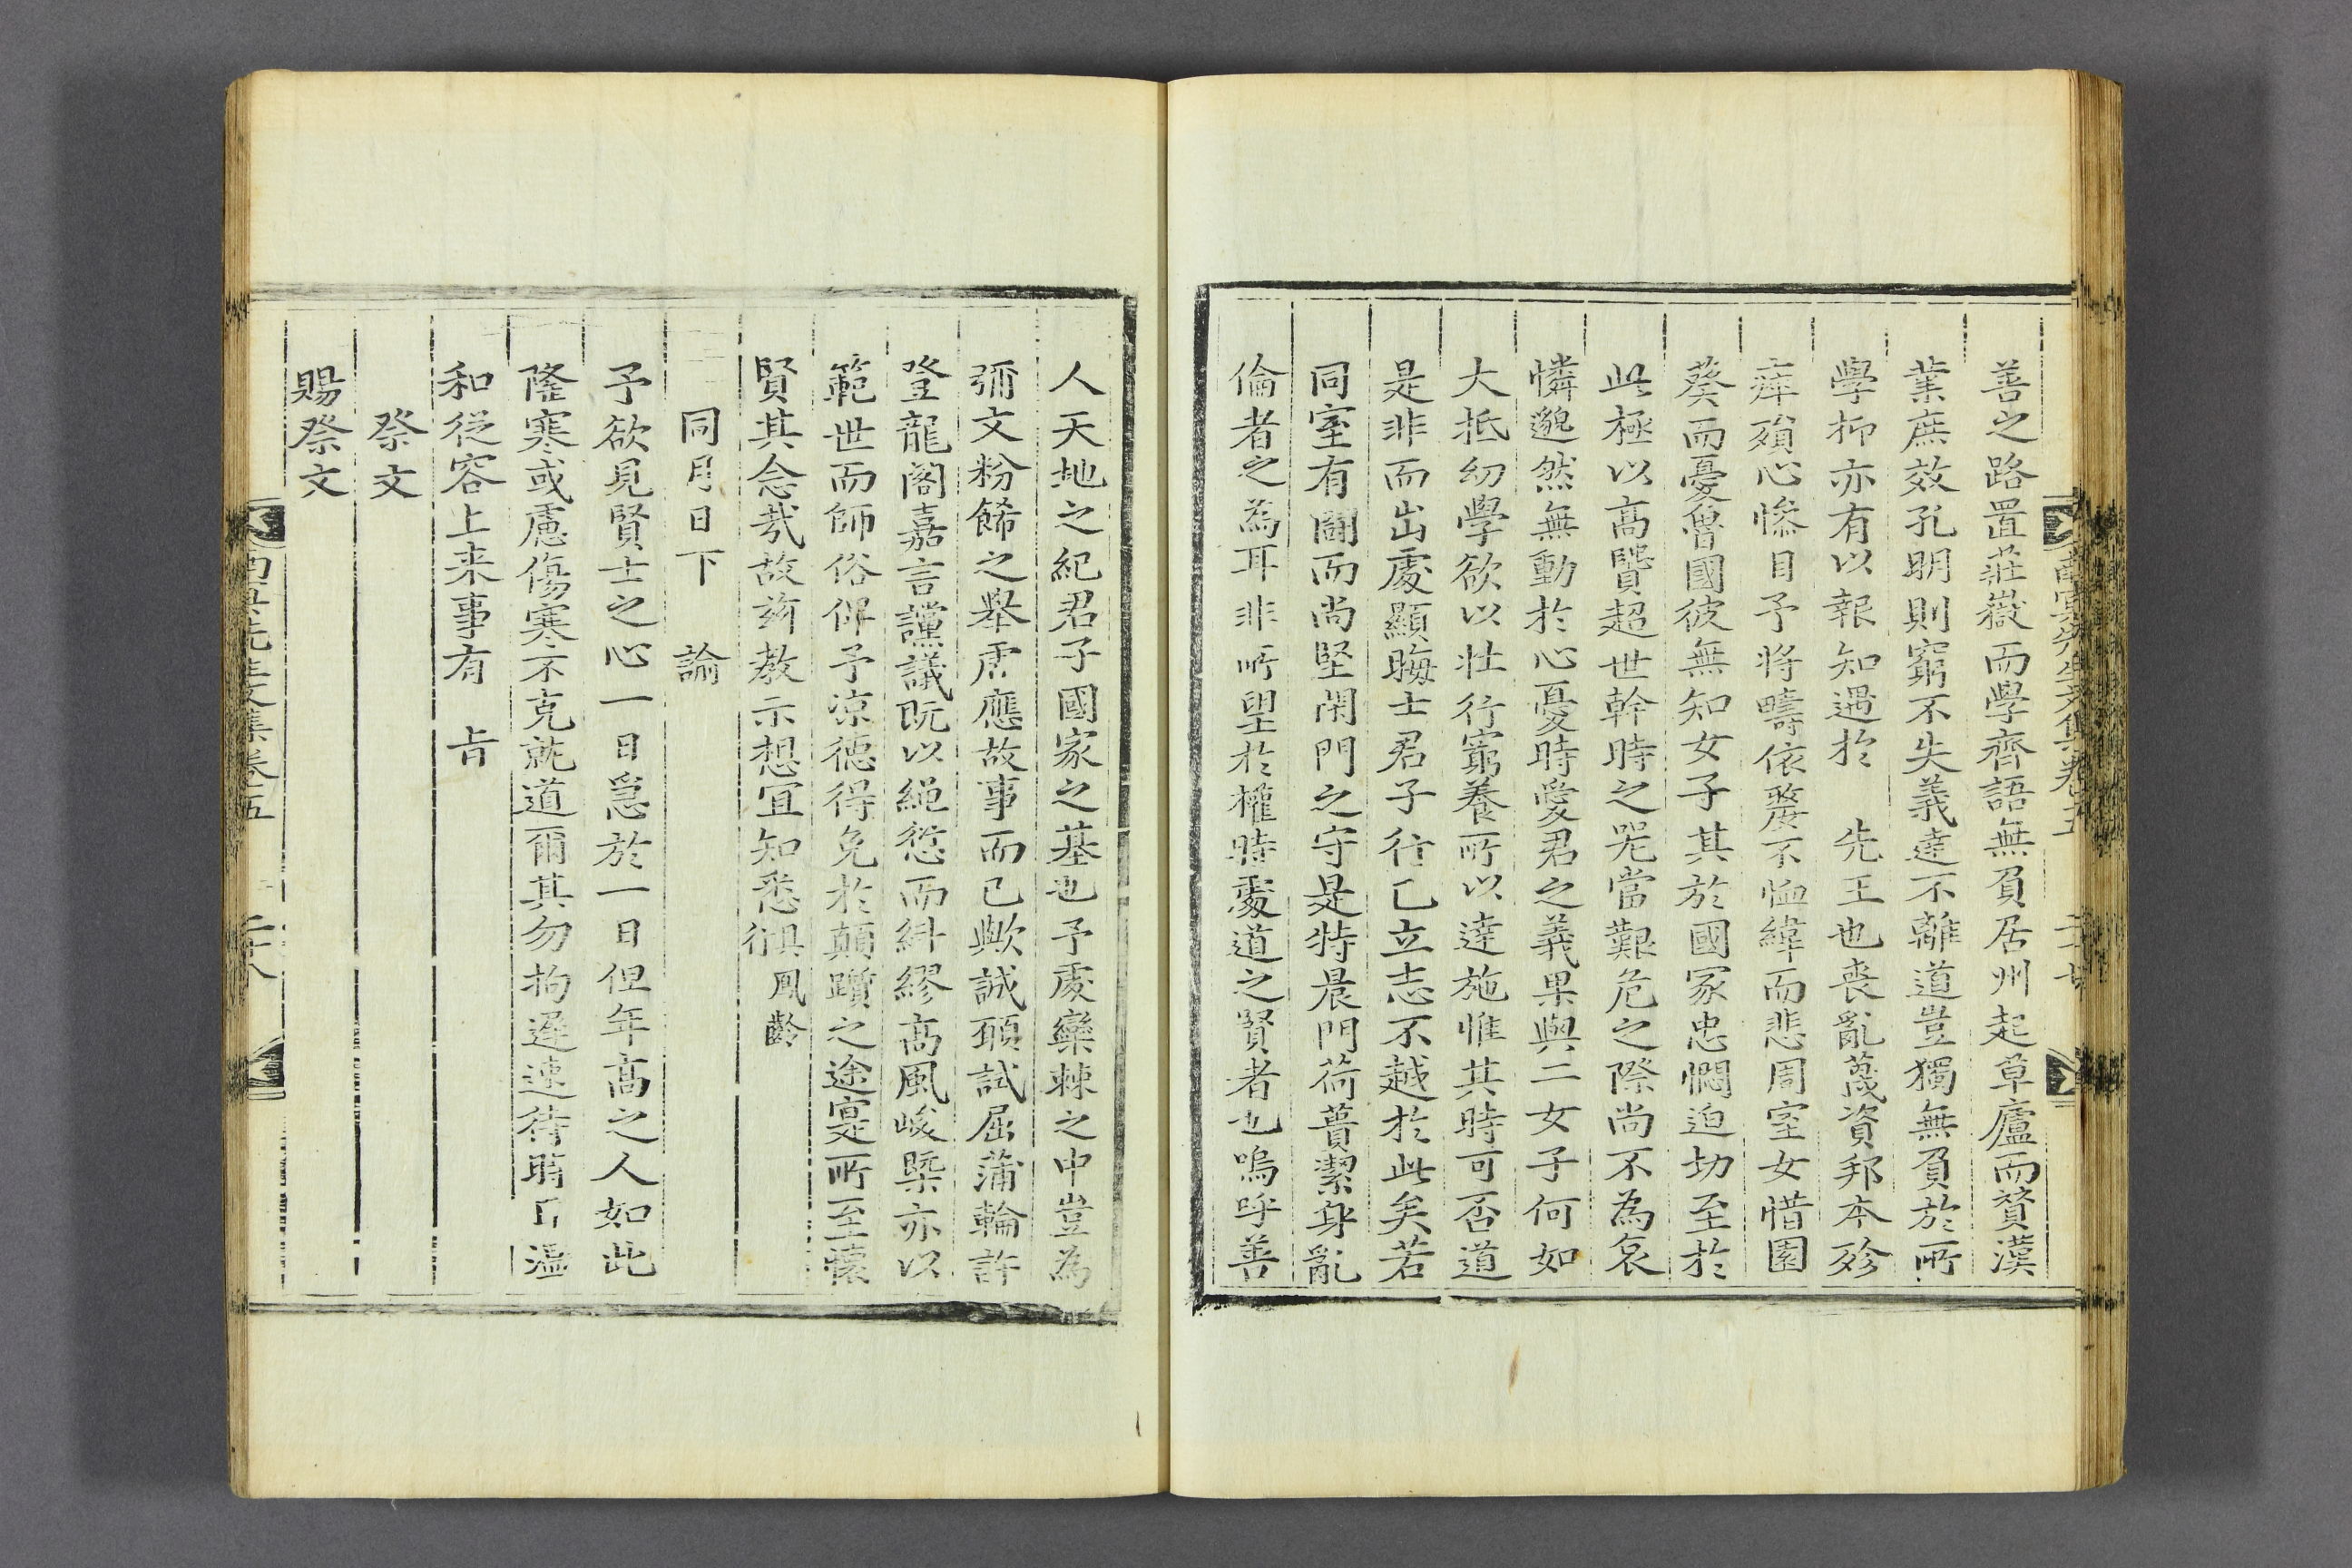 善之路置莊嶽而學齊語無負居州起草廬而贊漢
業庶效孔明則窮不失義達不離道豈獨無負於所
學抑亦有以報知遇於 先王也喪亂蔑資邦本殄
瘁殞心慘目予將疇依嫠不恤緯而悲周室女惜園
葵而憂魯國彼無知女子其於國家忠悃迫切至於
此極以高賢超世幹時之才當艱危之際尚不為哀
憐邈然無動於心憂時愛君之義果與二女子何如
大抵幼學欲以壯行窮養所以達施惟其時可否道
是非而出處顯晦士君子行己立志不越於此矣若
同室有鬪而尚堅閉門之守是特晨門荷蕢潔身亂
倫者之為耳非所望於權時處道之賢者也嗚呼善
人天地之紀君子國家之基也予處欒棘之中豈為
彌文粉餙之舉虗應故事而已歟誠願試屈蒲輪許
登龍閣嘉言讜議既以繩愆而糾繆高風峻槩亦以
範世而師俗俾予凉德得免於顛躓之途寔所至懷
賢其念哉故茲教示想宜知悉 俱鳳齡行
同月日下 諭
予欲見賢士之心一日急於一日但年高之人如此
隆寒或慮傷寒不克就道爾其勿拘遲速待明日溫
和從容上来事有 旨
祭文
賜祭文
南冥先生文集卷五 二十八